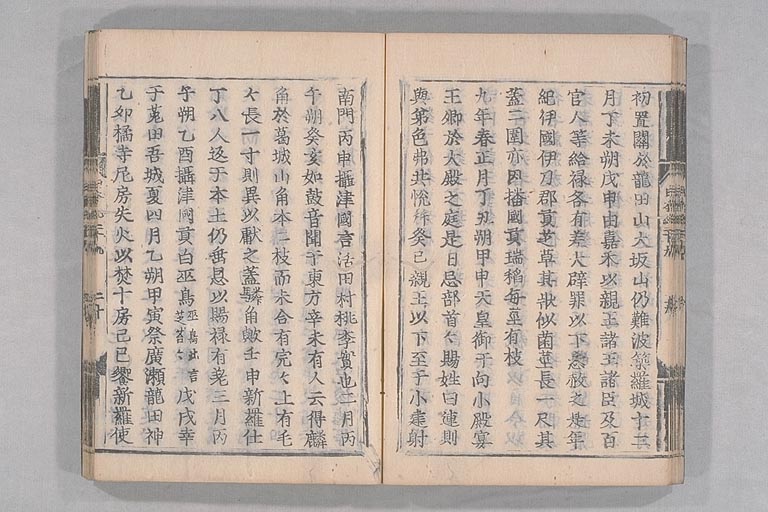 初置關於龍田山大坂山仍難波築羅城十二
月丁未朔戊申由嘉禾以親王諸王諸臣及百
官人等給禄各有差大辟罪以下悉赦之是年
紀伊國伊刀郡貢芝草其狀似菌莖長一尺其
蓋二圍亦因播國貢瑞稻每莖有枝
九年春正月丁丑朔甲申天皇御于向小殿宴
王卿於大殿之庭是日忌部首〻賜姓曰連則
與弟色弗共悅拜癸巳親王以下至于小建射
南門丙申攝津國言活田村桃李實也二月丙
午朔癸亥如鼓音聞于東方辛未有人云得麟
角於葛城山角本二枝而末合有宍〻上有毛
〻長一寸則異以獻之蓋驎角歟壬申新羅仕
丁八人返于本土仍垂恩以賜禄有差三月丙
子朔乙酉攝津國貢白巫鳥巫鳥此言芝苔〻戊戌幸
于菟田吾城夏四月乙朔甲寅祭廣瀬龍田神
乙卯橘寺尼房失火以焚十房己巳饗新羅使
二十